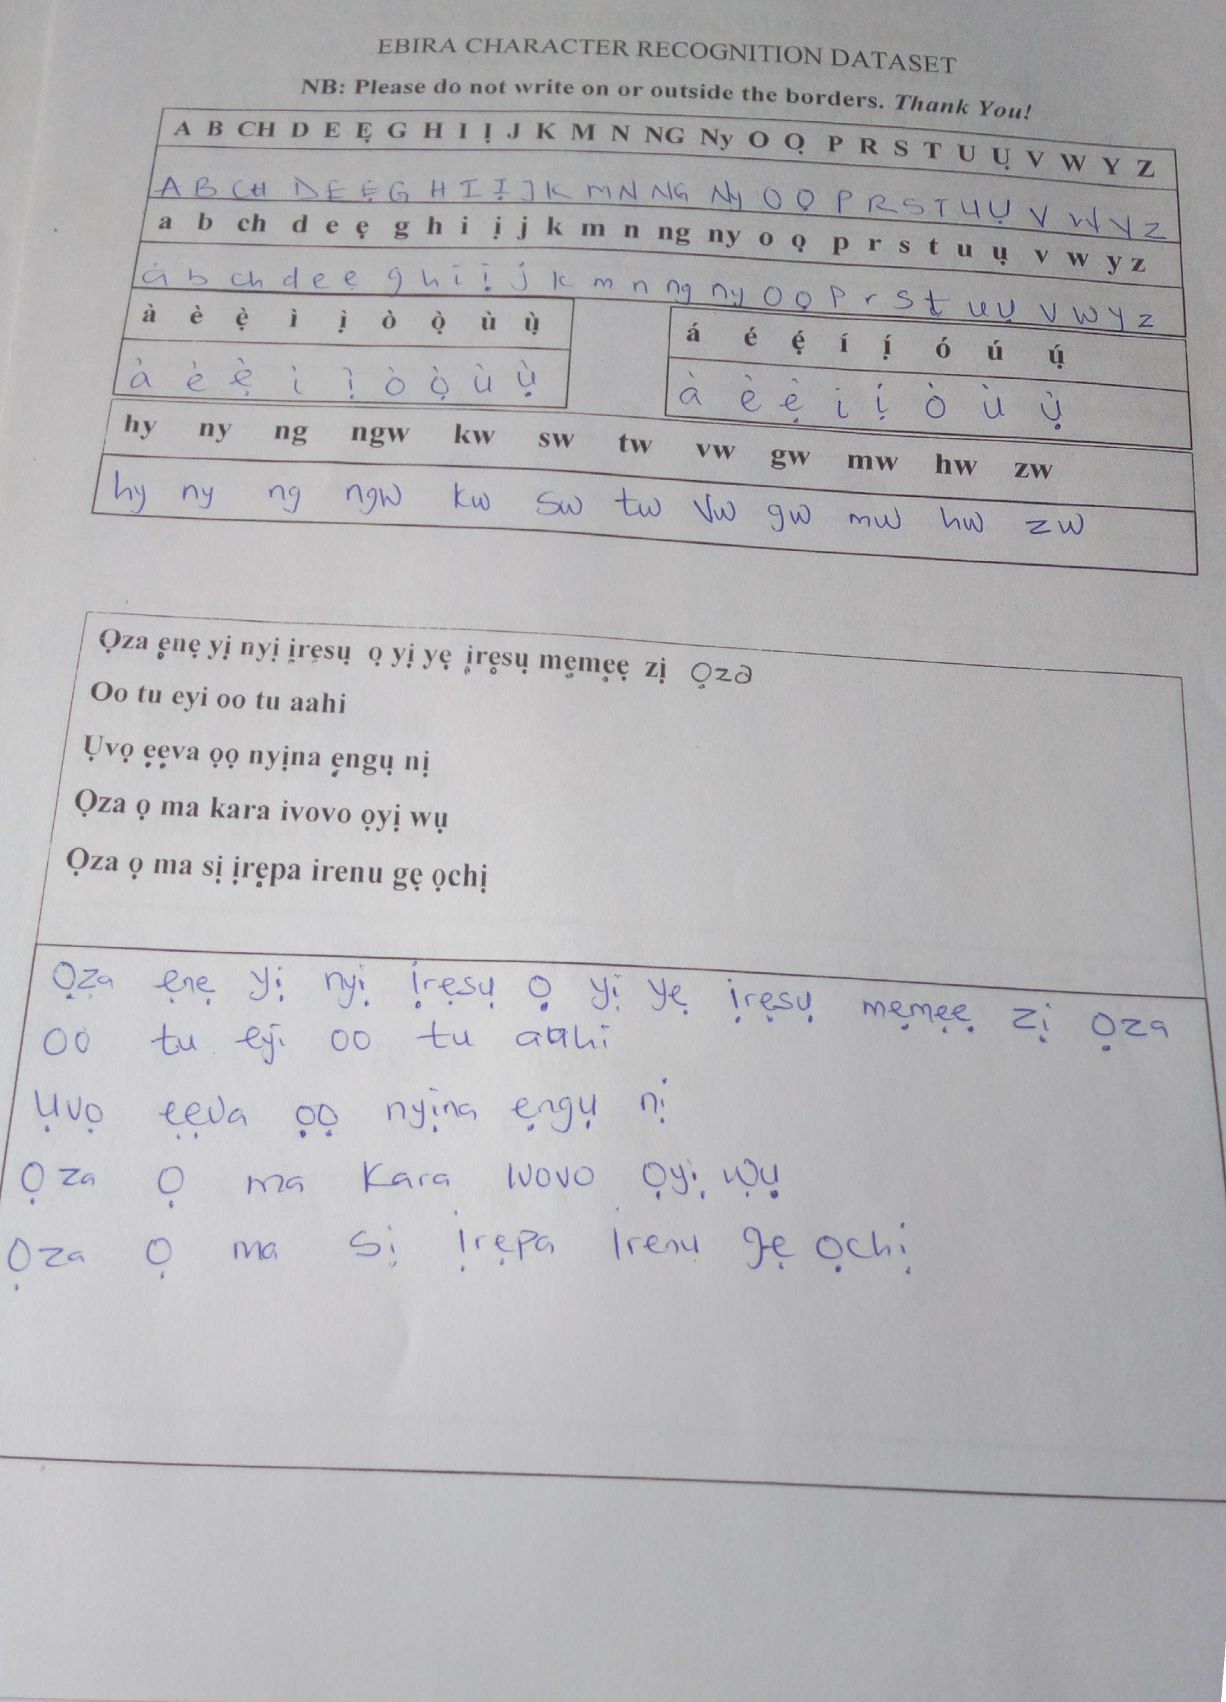 EBIRA CHARACTER RECOGNITION DATASET
NB: Please do not write on or outside the borders. Thank You!
A B CH D E Ẹ G H I Ị J K M N NG Ny O Ọ P R S T U Ụ V W Y Z
A B CH D E Ẹ G H I Ị J K M N NG Ny O Ọ P R S T U Ụ V W Y Z
a b ch d e ẹ g h i ị j k m n ng ny o ọ p r s t u ụ v w y z
a b ch d e ẹ g h i ị j k m n ng ny o ọ p r s t u ụ v w y z
à è ẹ̀ ì ị̀ ò ọ̀ ù ụ̀
á é ẹ́ í ị́ ó ú ụ́
à è ẹ̀ ì ị̀ ò ọ̀ ù ụ̀
à è ẹ̀ i ị́ ò ù ụ̀
hy ny ng ngw kw sw tw vw gw mw hw zw
hy ny ng ngw kw sw tw vw gw mw hw zw
Ọza ẹnẹ yị nyị ịrẹsụ ọ yị yẹ ịrẹsụ mẹmẹẹ zị Ọza
Oo tu eyi oo tu aahi
Ụvọ ẹẹva ọọ nyịna ẹngụ nị
Ọza ọ ma kara ivovo ọyị wụ
Ọza ọ ma sị ịrẹpa irenu gẹ ọchị
Ọẓa ẹnẹ yị nyị ịrẹsụ Ọ yị yẹ ịrẹsụ mẹmẹẹ zị Ọza
Oo tu eyi oo tu aahi
Ụvọ ẹẹva ọọ nyịna ẹngụ nị
Ọza Ọ ma Kara ivovo Ọyị ẉụ
Ọza Ọ ma Sị ịrẹpa Irenu gẹ Ọchị